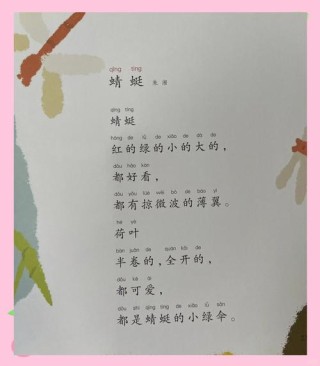 qīng tíng
蜻蜓
qīng tíng
蜻蜓
hóng de lǜ de xiǎo de dà de
红的绿的小的大的，
dōu hǎo kàn
都好看，
dōu yǒu lüè wēi bō de báo yì
都有掠微波的薄翼。
hé yè
荷叶
bàn juǎn de quán kāi de
半卷的，全开的，
dōu kě ài
都可爱，
dōu shì qīng tíng de xiǎo lǜ sǎn
都是蜻蜓的小绿伞。